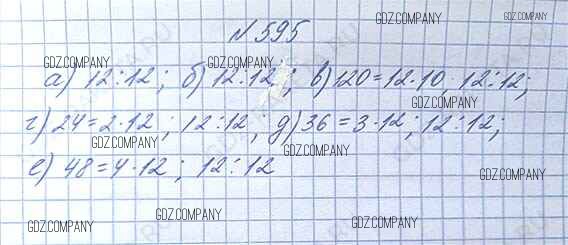 N 595
а) 12 : 12 ; б) 12 : 12 ; в) 120 = 12 · 10, 12 : 12;
г) 24 = 2 · 12 ; 12 : 12 ; д) 36 = 3 · 12; 12 : 12;
е) 48 = 4 · 12 ; 12 : 12
GDZ.COMPANY
GDZ.COMPANY
GDZ.COMPANY
GDZ.COMPANY
GDZ.COMPANY
GDZ.COMPANY
GDZ.COMPANY
GDZ.COMPANY
GDZ.COMPANY
GDZ.COMPANY
GDZ.COMPANY
GDZ.COMPANY